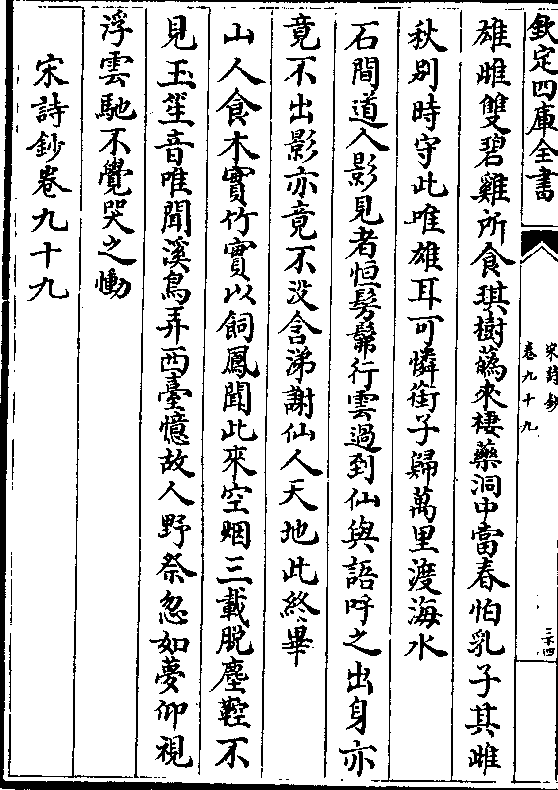 欽定四庫全書
宋詩鈔
卷九十九
三十四
雄雌雙碧雞所食琪樹蘤來棲藥洞中當春怕乳子其雌
秋别時守此唯雄耳可憐銜子歸萬里渡海水
石間道人影見者恒髣髴行雲過到仙與語呼之出身亦
竟不出影亦竟不没含涕謝仙人天地此終畢
山人食木實竹實以飼鳳聞此來空烟三載脱塵鞚不
見玉笙音唯聞溪鳥弄西臺憶故人野祭忽如夢仰視
浮雲馳不覺哭之慟
宋詩鈔卷九十九